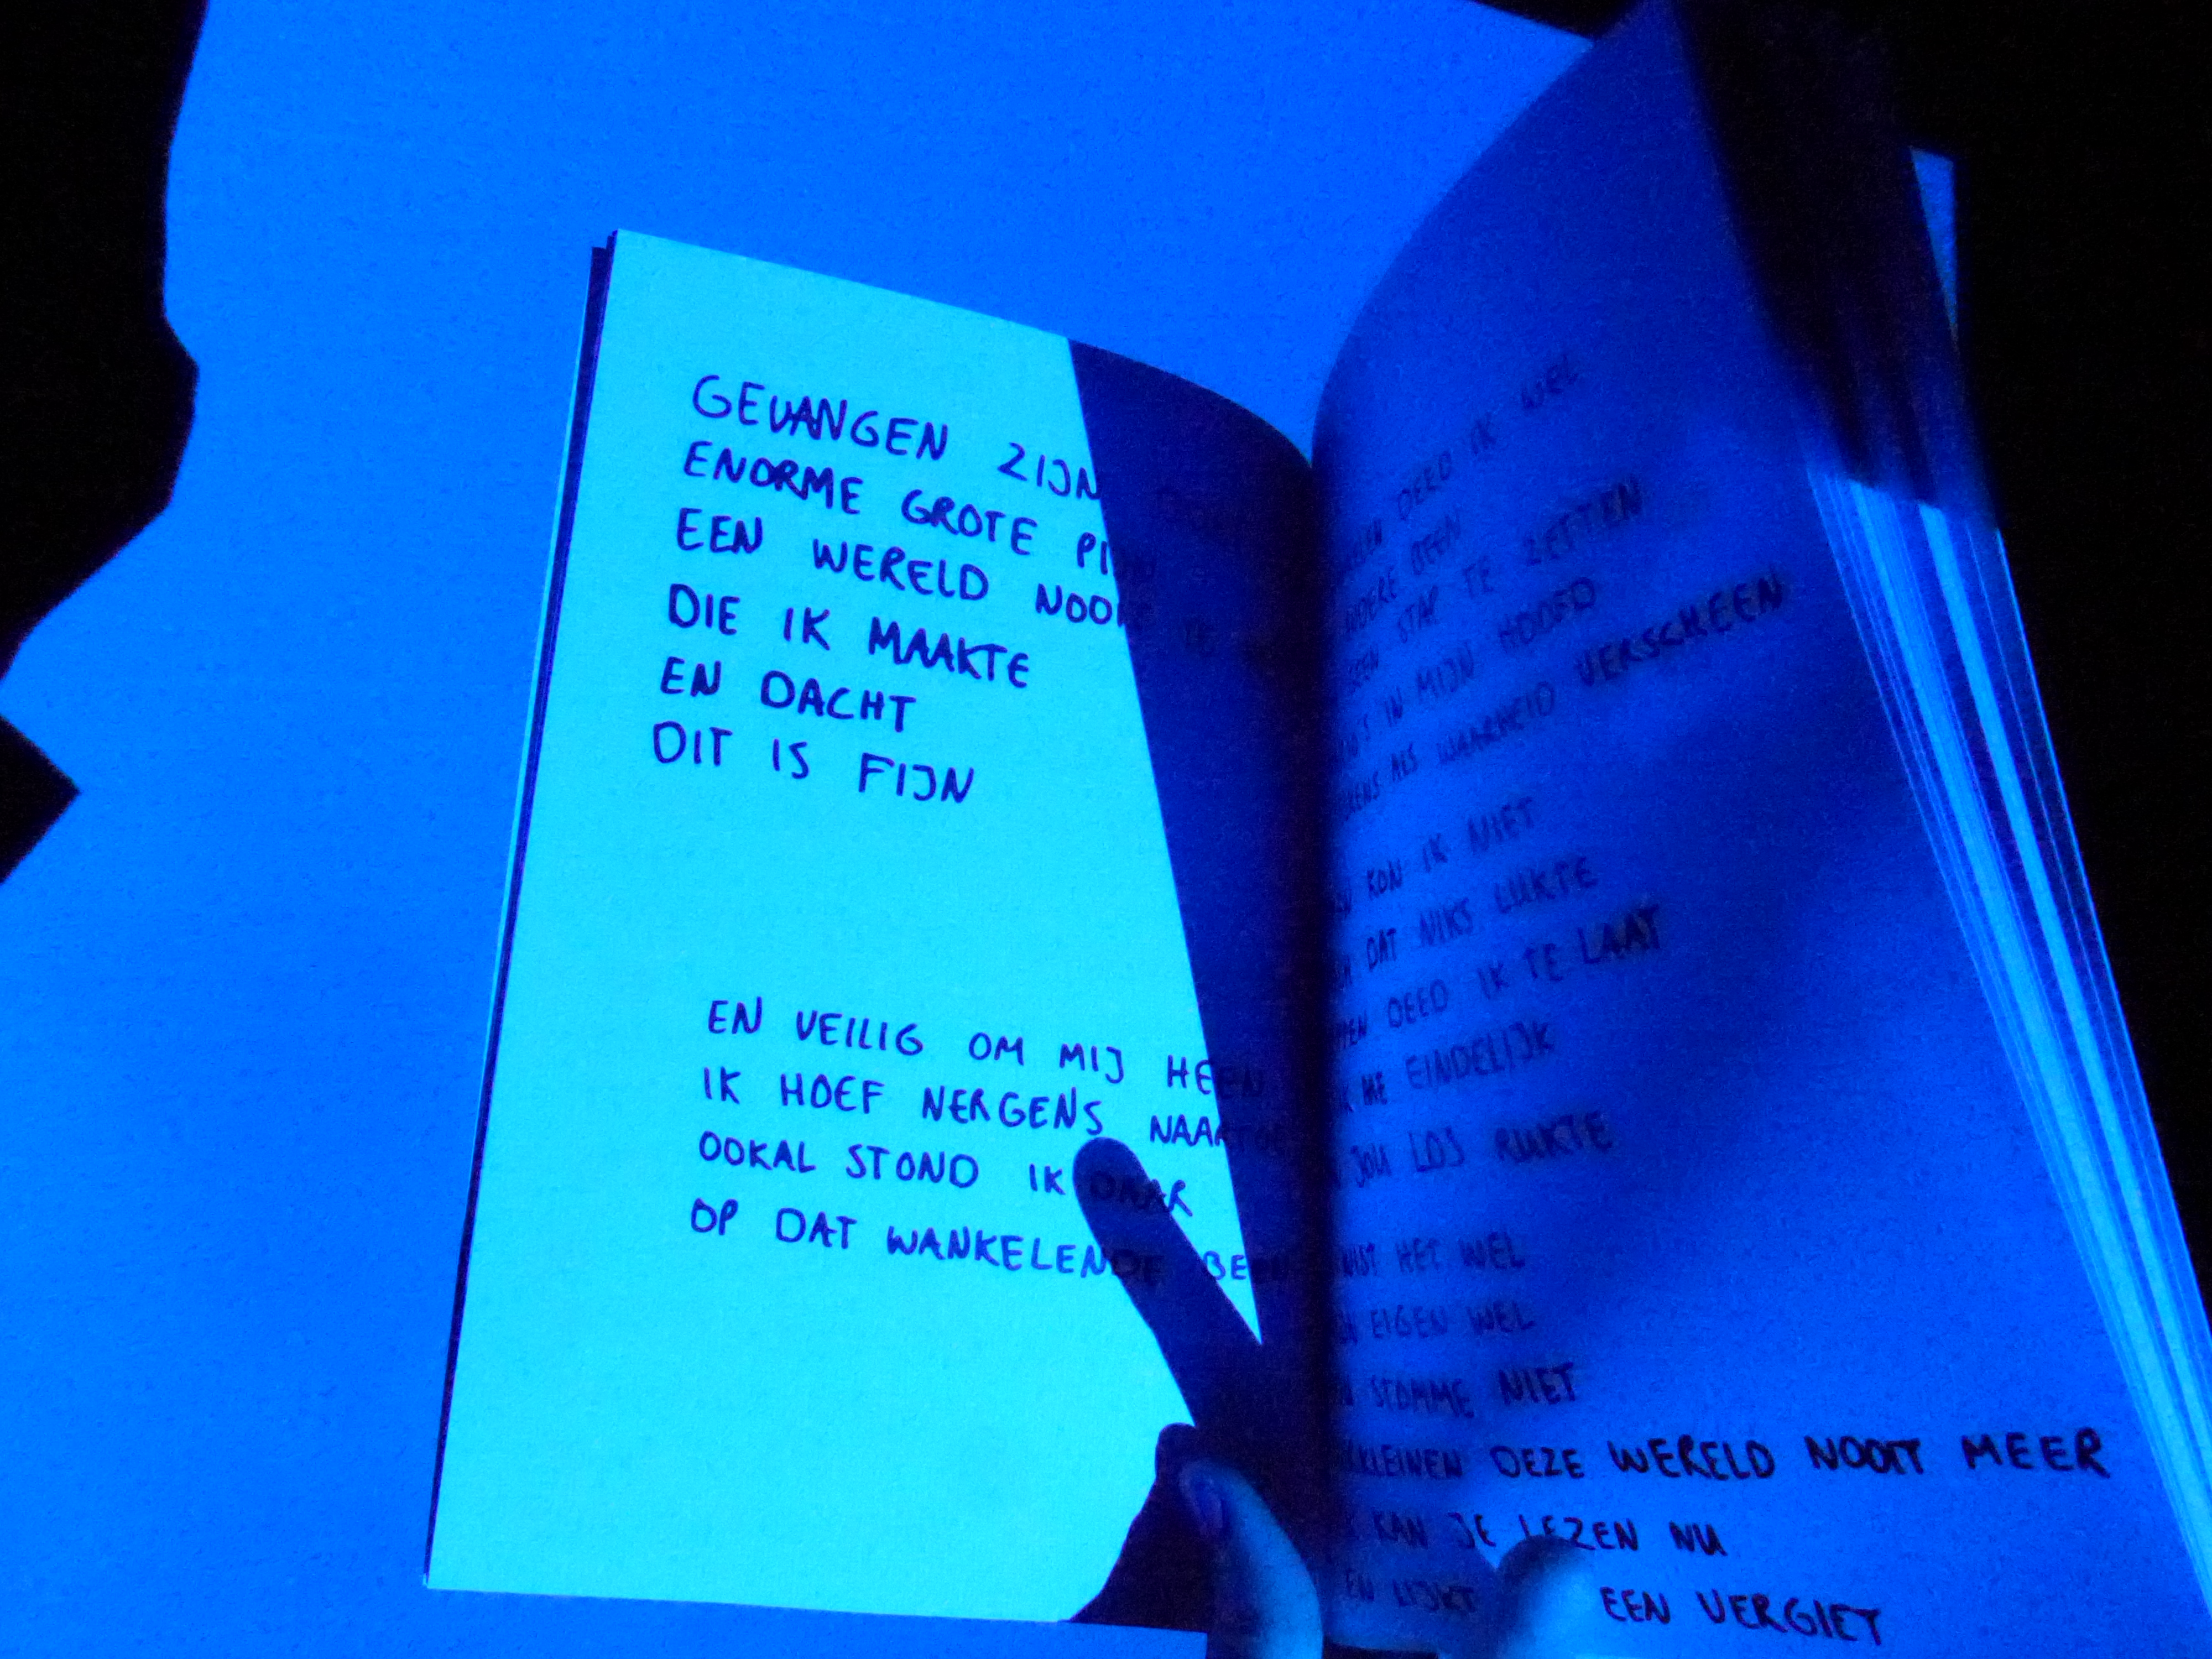 GEVANGEN ZIJN
ENORME GROTE
EEN WERELD NOOIT TE
DIE IK MAAKTE
EN DACHT
DIT IS FIJN
EN VEILIG OM MIJ HEEN
IK HOEF NERGENS NAARTOE
OOKAL STOND IK DAAR
OP DAT WANKELENDE BEEN
DEED IK WEL
BEEN
STAP TE ZETTEN
IN MIJN HOOFD
ALS WAARHEID VERSCHEEN
KON IK NIET
DAT NIKS LUKTE
DEED IK TE LAAT
ME EINDELIJK
JOU LOS RUKTE
HET WEL
EIGEN WEL
STOMME NIET
DEZE WERELD NOOIT MEER
KAN JE LEZEN NU
EN LIJKT EEN VERGIET